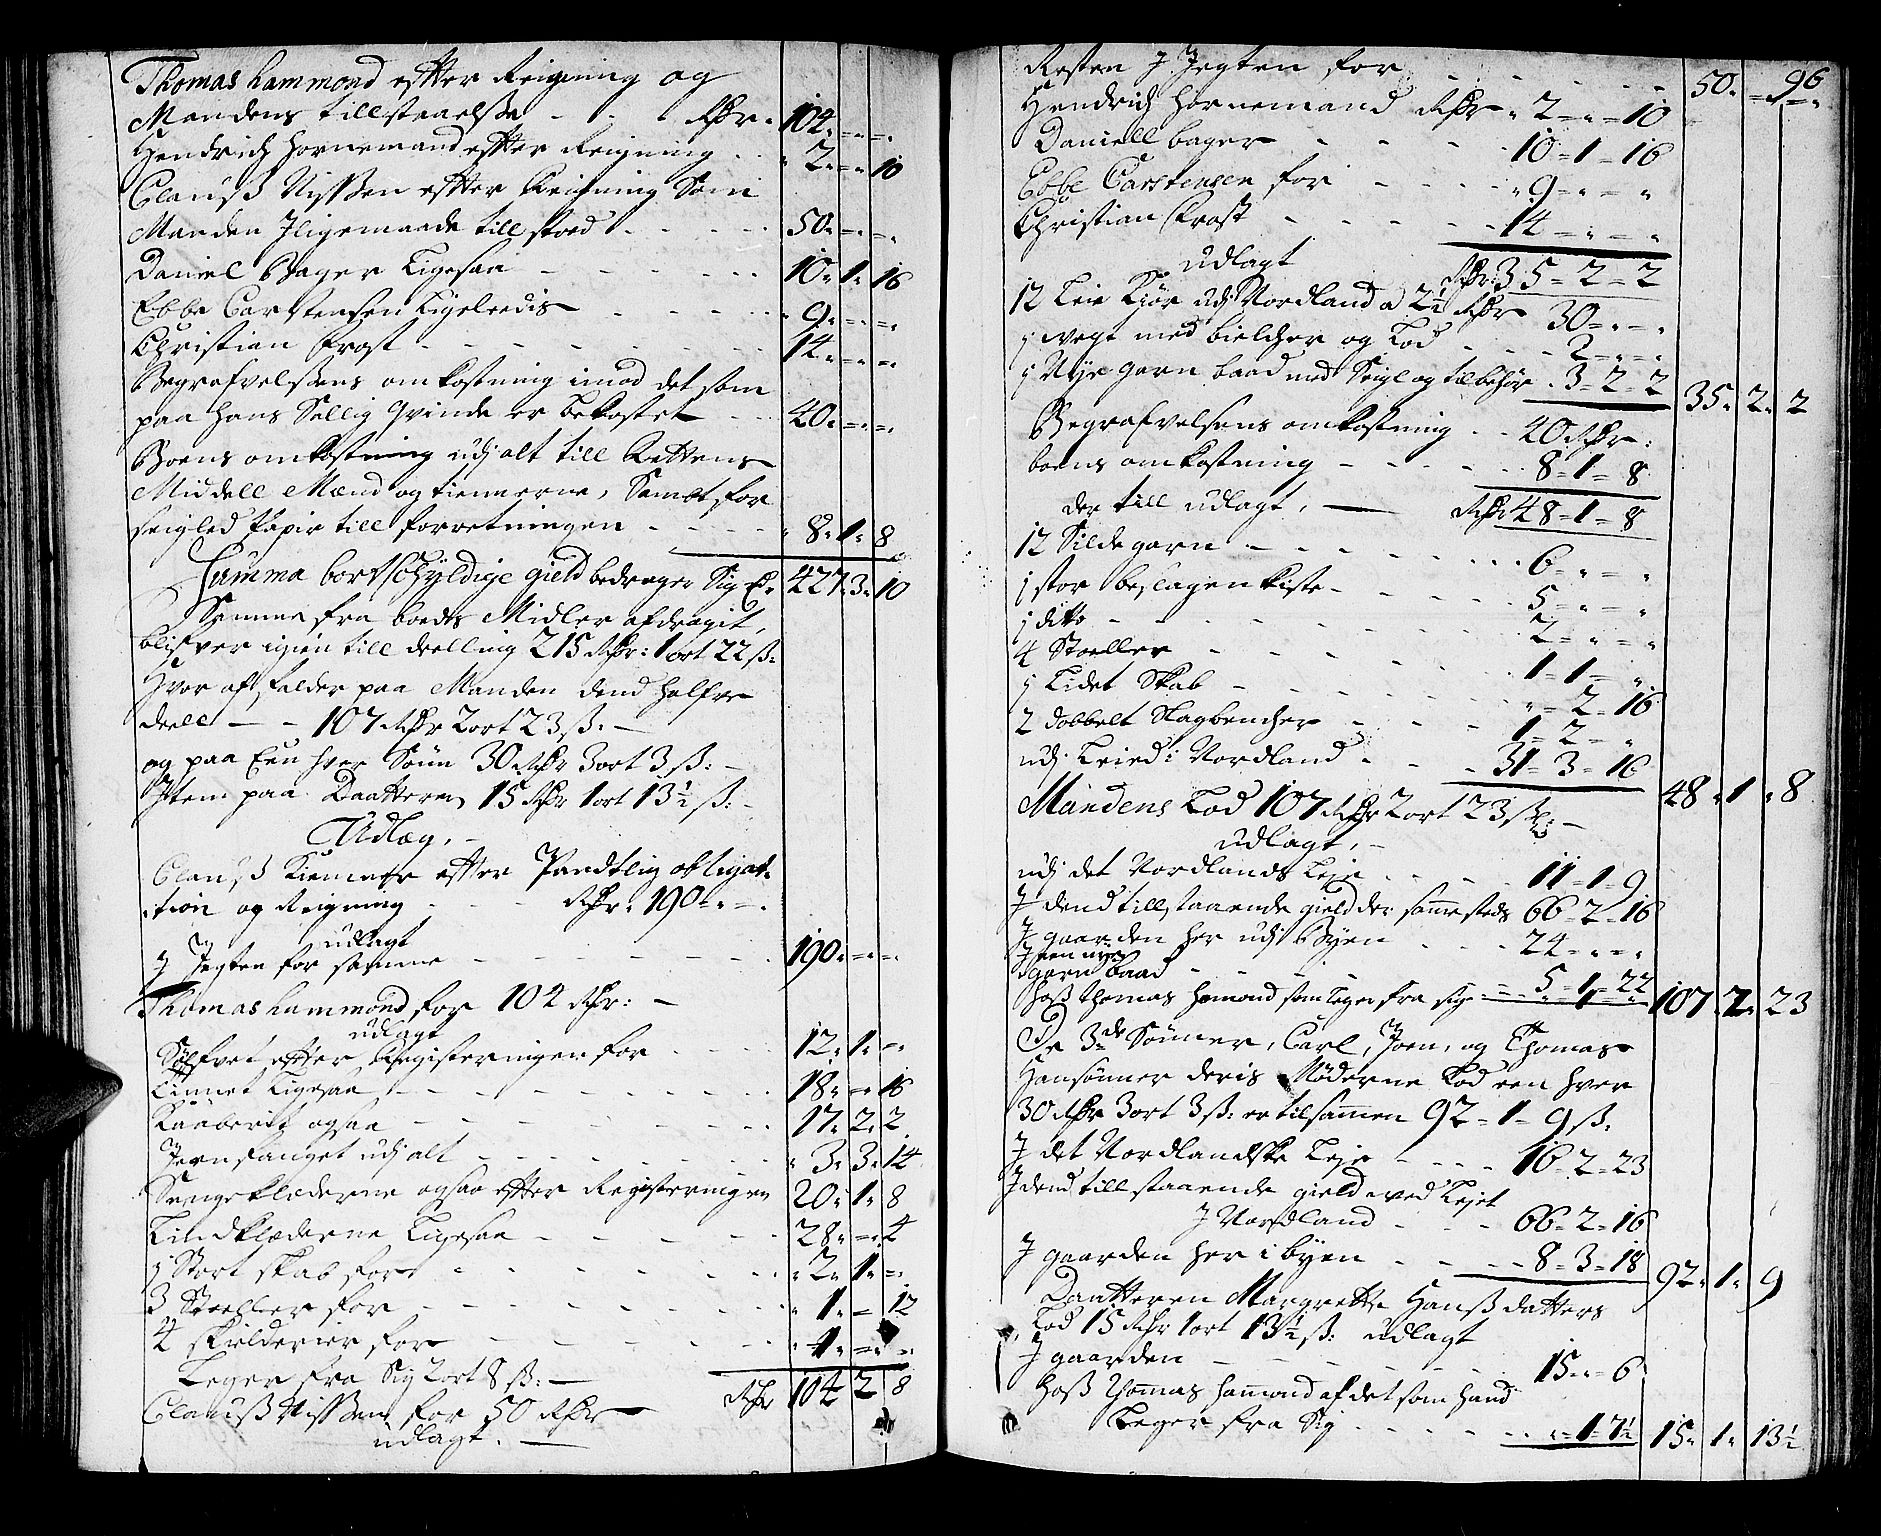 Thomas hammond efter Reigning og
Mandens tillstaaelse - - Rdr. 104 " = " = "
Hendrich hornemand efter Reigning . . " 2 " = " 10
Clauss Nissen efter Reigning Som
Manden Jligemaade till stod - - - - 50 " = " = "
Daniel Bager Ligesaa - - - - 10 " 1 " 16
Ebbe Carstensen Ligeleedis - - - - 9 " = " = "
Christian Frost - - - - - - 14 " = " = "
Begrafvelsens omkostning imod det som
paa hans Sallig Qvinde er bekostet - - 40 " = " = "
Boens omkostning udj alt till Rettens
Middell Mænd og tiennerne, Sambt for
seigled Papir till forretningen - - - - " 8 " 1 " 8
Summa bortschyldige gield bedrager Sig Er 427 " 3 " 10
Samme fra boeds Midler afdragit,
blifver igien till deelling 215 Rdr: 1 ort 22 ß:
Hvor af falder paa Manden dend halfve
deell - - 107 Rdr 2 ort 23 ß: -
og paa Een hver Sönn 30 Rdr 3 ort 3 ß: -
Item paa Daatteren 15 Rdr 1 ort 13½ ß: -
Udlæg, -
Clauss Kiemmer efter Pandtlig obligat-
ition og Reigning - - - Rdr. 190 " = " .
udlagt
J Jegten for samme - - - - - - 190 " = " = "
Thomas hammond for 104 Rdr: -
udlagt
Sölfvet efter Registeringen for - - - - 12 " 1 " = "
Linnet Ligesaa - - - - - - 18 " = " 16
Kaaberit ogsaa - - - - - - 17 " 2 " 2
Jernfanget udj alt - - - - - - " 3 " 3 " 14
Sengeklæderne ogsaa efter Registeringen 20 " 1 " 8
Lindklæderne Ligesaa - - - - - 28 " = " 4
1 Stort skab for - - - - - - " 2 " 1 " = "
3 Stoeller for - - - - - - " 1 " = 12
4 skilderier for - - - - - " 1 " = " = "
Leger fra Sig 2 ort 8 ß: - Rdr 104 2 8
Clauss Nissen for 50 Rdr
udlagt. -
96
Resten J Jegten for - - - - 50 " = " = "
Hendrich hornemand Rdr " 2 = " = 10
Daniell bager - - - - 10 = 1 = 16
Ebbe Carstensen for - - - - " 9 = " = "
Christian Frost - - - - 14 = " = "
udlagt Rdr: 35 = 2 = 2
12 Leie Kiör udj Nordland a 2½ Rdr 30 = " = "
1 vegt med bielcher og Lod - - - 2 = " = "
1 Nye garn baad med Seigl og tilbehör . 3 = 2 = 2 35 " 2 " 2
Begrafvelsens omkostning . . 40 Rdr:
boens omkostning - - - - - 8 = 1 = 8
der till udlagt, - Rdr 48 = 1 = 8
12 Silde garn - - - - - - 6 = " = "
1 stor beslagen kiste - - - - - 5 = " = "
1 ditto - - - - - - 2 = " = "
4 Stoeller - - - - - - 1 = 1 = "
1 Lidet Skab - - - - - - " = 2 = 16
2 dobbelt Slagbencher - - - - 1 = 2 = "
udj Leied i Nordland - - - 31 = 3 = 16 48 " 1 " 8
Mandens Lod 107 Rdr 2 ort 23 ß: -
udlagt, -
udj det Nordlands Leje - - - - 11 = 1 = 9
J dend till staaende gield der samme steds 66 = 2 = 16
J gaarden her udj Byen - - - 24 = " = "
J een nye
garn baad - - - -
hoß Thomas Hamond som leger fra sig = = . 5 = 1 = 22 107 " 2 " 23
De 3de Sönner, Carl, Joen, og Thomas
Hansönner deris Möderne Lod een hver
30 Rdr 3 ort 3 ß: er tilsammen 92 = 1 = 9 ß:
J det Nordlandske Leje - - - - 16 = 2 = 23
J dend till staaende gield ved Lejet
J Nordland - - - 66 = 2 = 16
J gaarden her i byen - - - - 8 = 3 = 18 92 " 1 " 9
Daatteren Margrette Hanß datters
Lod 15 Rdr 1 ort 13½ ß: udlagt
J gaarden - - - - - - 15 " = 6
hoß Thomas Hamond af det som hand
Leger fra Sig - - - - - " = 1 = 7½ 15 " 1 " 13½